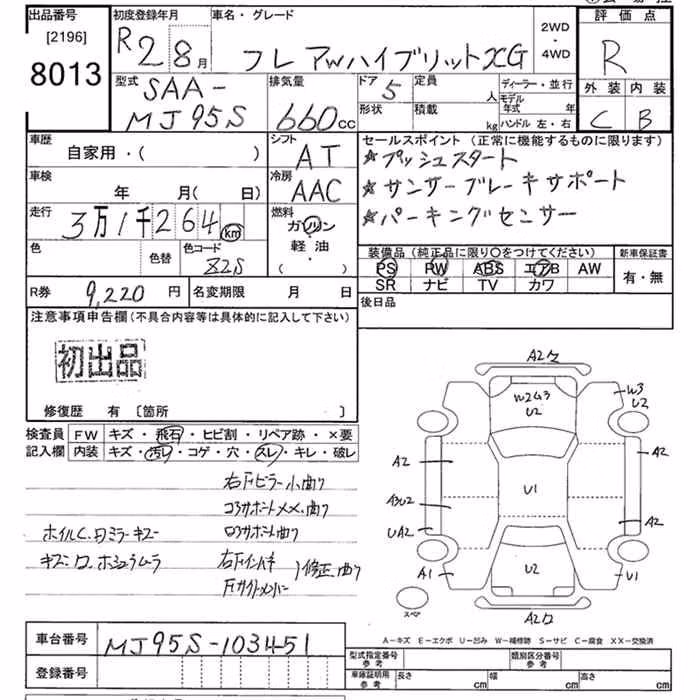 出品番号
[2196]
8013
初度登録年月
R2 8月
車名・グレード
フレアWハイブリットXG
2WD
4WD
評価点
R
外装 内装
C B
型式
SAA-
MJ95S
排気量
660cc
ドア 5
形状
定員 人
積載 kg
ディーラー・並行
モデル年式 年
ハンドル 左・右
車歴
自家用・( )
シフト
AT
車検
年 月( 日)
冷房
AAC
走行
3万1千264km
燃料
ガソリン
軽油
( ・ )
色
色替
色コード
Z2S
R券 9,220円
名変期限 月 日
セールスポイント (正常に機能するものに限ります)
★プッシュスタート
★サンサーブレーキサポート
★パーキングセンサー
装備品 (純正品に限り〇をつけてください)
PS PW ABS エアB AW
SR ナビ TV カワ
新車保証書
有・無
後日品
注意事項申告欄(不具合内容等は具体的に記入して下さい)
初出品
修復歴 有 〔箇所 〕
検査員記入欄
FW キズ・飛石・ヒビ割・リペア跡・×要
内装 キズ・汚レ・コゲ・穴・スレ・キレ・破レ
右下ピラー小曲り
コアサポートメメ、曲り
ロアサポート曲り
ホイルC.
キズ
修正、曲り
A2
W2
U2
W3
U2
A2
A2
U1
A3U2
UA2
A2
A1
U2
U1
スペア
A2
A-キズ E-エクボ U-凹み W-補修跡 S-サビ C-腐食 XX-交換済
車台番号
MJ95S-103451
登録番号
型式指定番号 参考
類別区分番号 参考
車庫証明用 参考
長さ cm
幅 cm
高さ cm